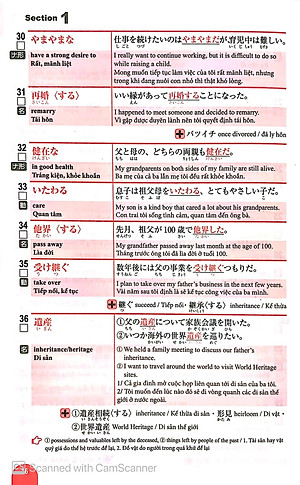 Section 1
30 やまやまな 仕事を続けたいのはやまやまだが、育児中は難しい。
ナ形 have a strong desire to I really want to continue working, but it is difficult to do so
Rất, mãnh liệt while raising a child.
Mong muốn tiếp tục làm việc của tôi rất mãnh liệt, nhưng
trong khi đang nuôi con nhỏ thì thật khó khăn.
31 再婚〈する〉 いい縁があって再婚することになった。
さいこん
remarry I happened to meet someone and decided to remarry.
Tái hôn Vì gặp được duyên lành nên tôi quyết định tái hôn.
バツイチ once divorced / đã ly hôn
32 健在な 父と母の、どちらの両親も健在だ。
けんざい
ナ形 in good health My grandparents on both sides of my family are still alive.
Tráng kiện, khỏe khoắn Ba mẹ của cả ba lẫn mẹ tôi đều rất khỏe khoắn.
33 いたわる 息子は祖父母をいたわる、とてもやさしい子だ。
care My son is a kind boy that cared a lot about his grandparents.
Quan tâm Con trai tôi sống tình cảm, quan tâm đến ông bà.
34 他界〈する〉 先月、祖父が100歳で他界した。
たかい
pass away My grandfather passed away last month at the age of 100.
Lìa đời Tháng trước ông của tôi đã lìa đời ở tuổi 100.
35 受け継ぐ 数年後には父の事業を受け継ぐつもりだ。
take over I plan to take over my father's business in the next few years.
Tiếp nối, kế tục Vài năm sau tôi định là sẽ kế tục công việc của ba mình.
継ぐ succeed / Tiếp nối・継承〈する〉 inheritance / Kế thừa
36 遺産 ①父の遺産について家族会議を開いた。
いさん
②いつか海外の世界遺産を巡りたい。
inheritance/heritage ① We held a family meeting to discuss our father's
Di sản inheritance.
② I want to travel around the world to visit World Heritage
Sites.
1/ Cả gia đình mở cuộc họp liên quan tới di sản của ba tôi.
2/ Tôi muốn đến lúc nào đó sẽ đi vòng quanh các di sản thế
giới ở nước ngoài.
①遺産相続〈する〉 inheritance / Kế thừa di sản・形見 heirloom / Di vật・
②世界遺産 World Heritage / Di sản thế giới
① possessions and valuables left by the deceased, ② things left by people of the past / 1. Tài sản hay vật
quý giá do thế hệ trước để lại, 2. Đồ vật do người trong quá khứ để lại
Scanned with CamScanner